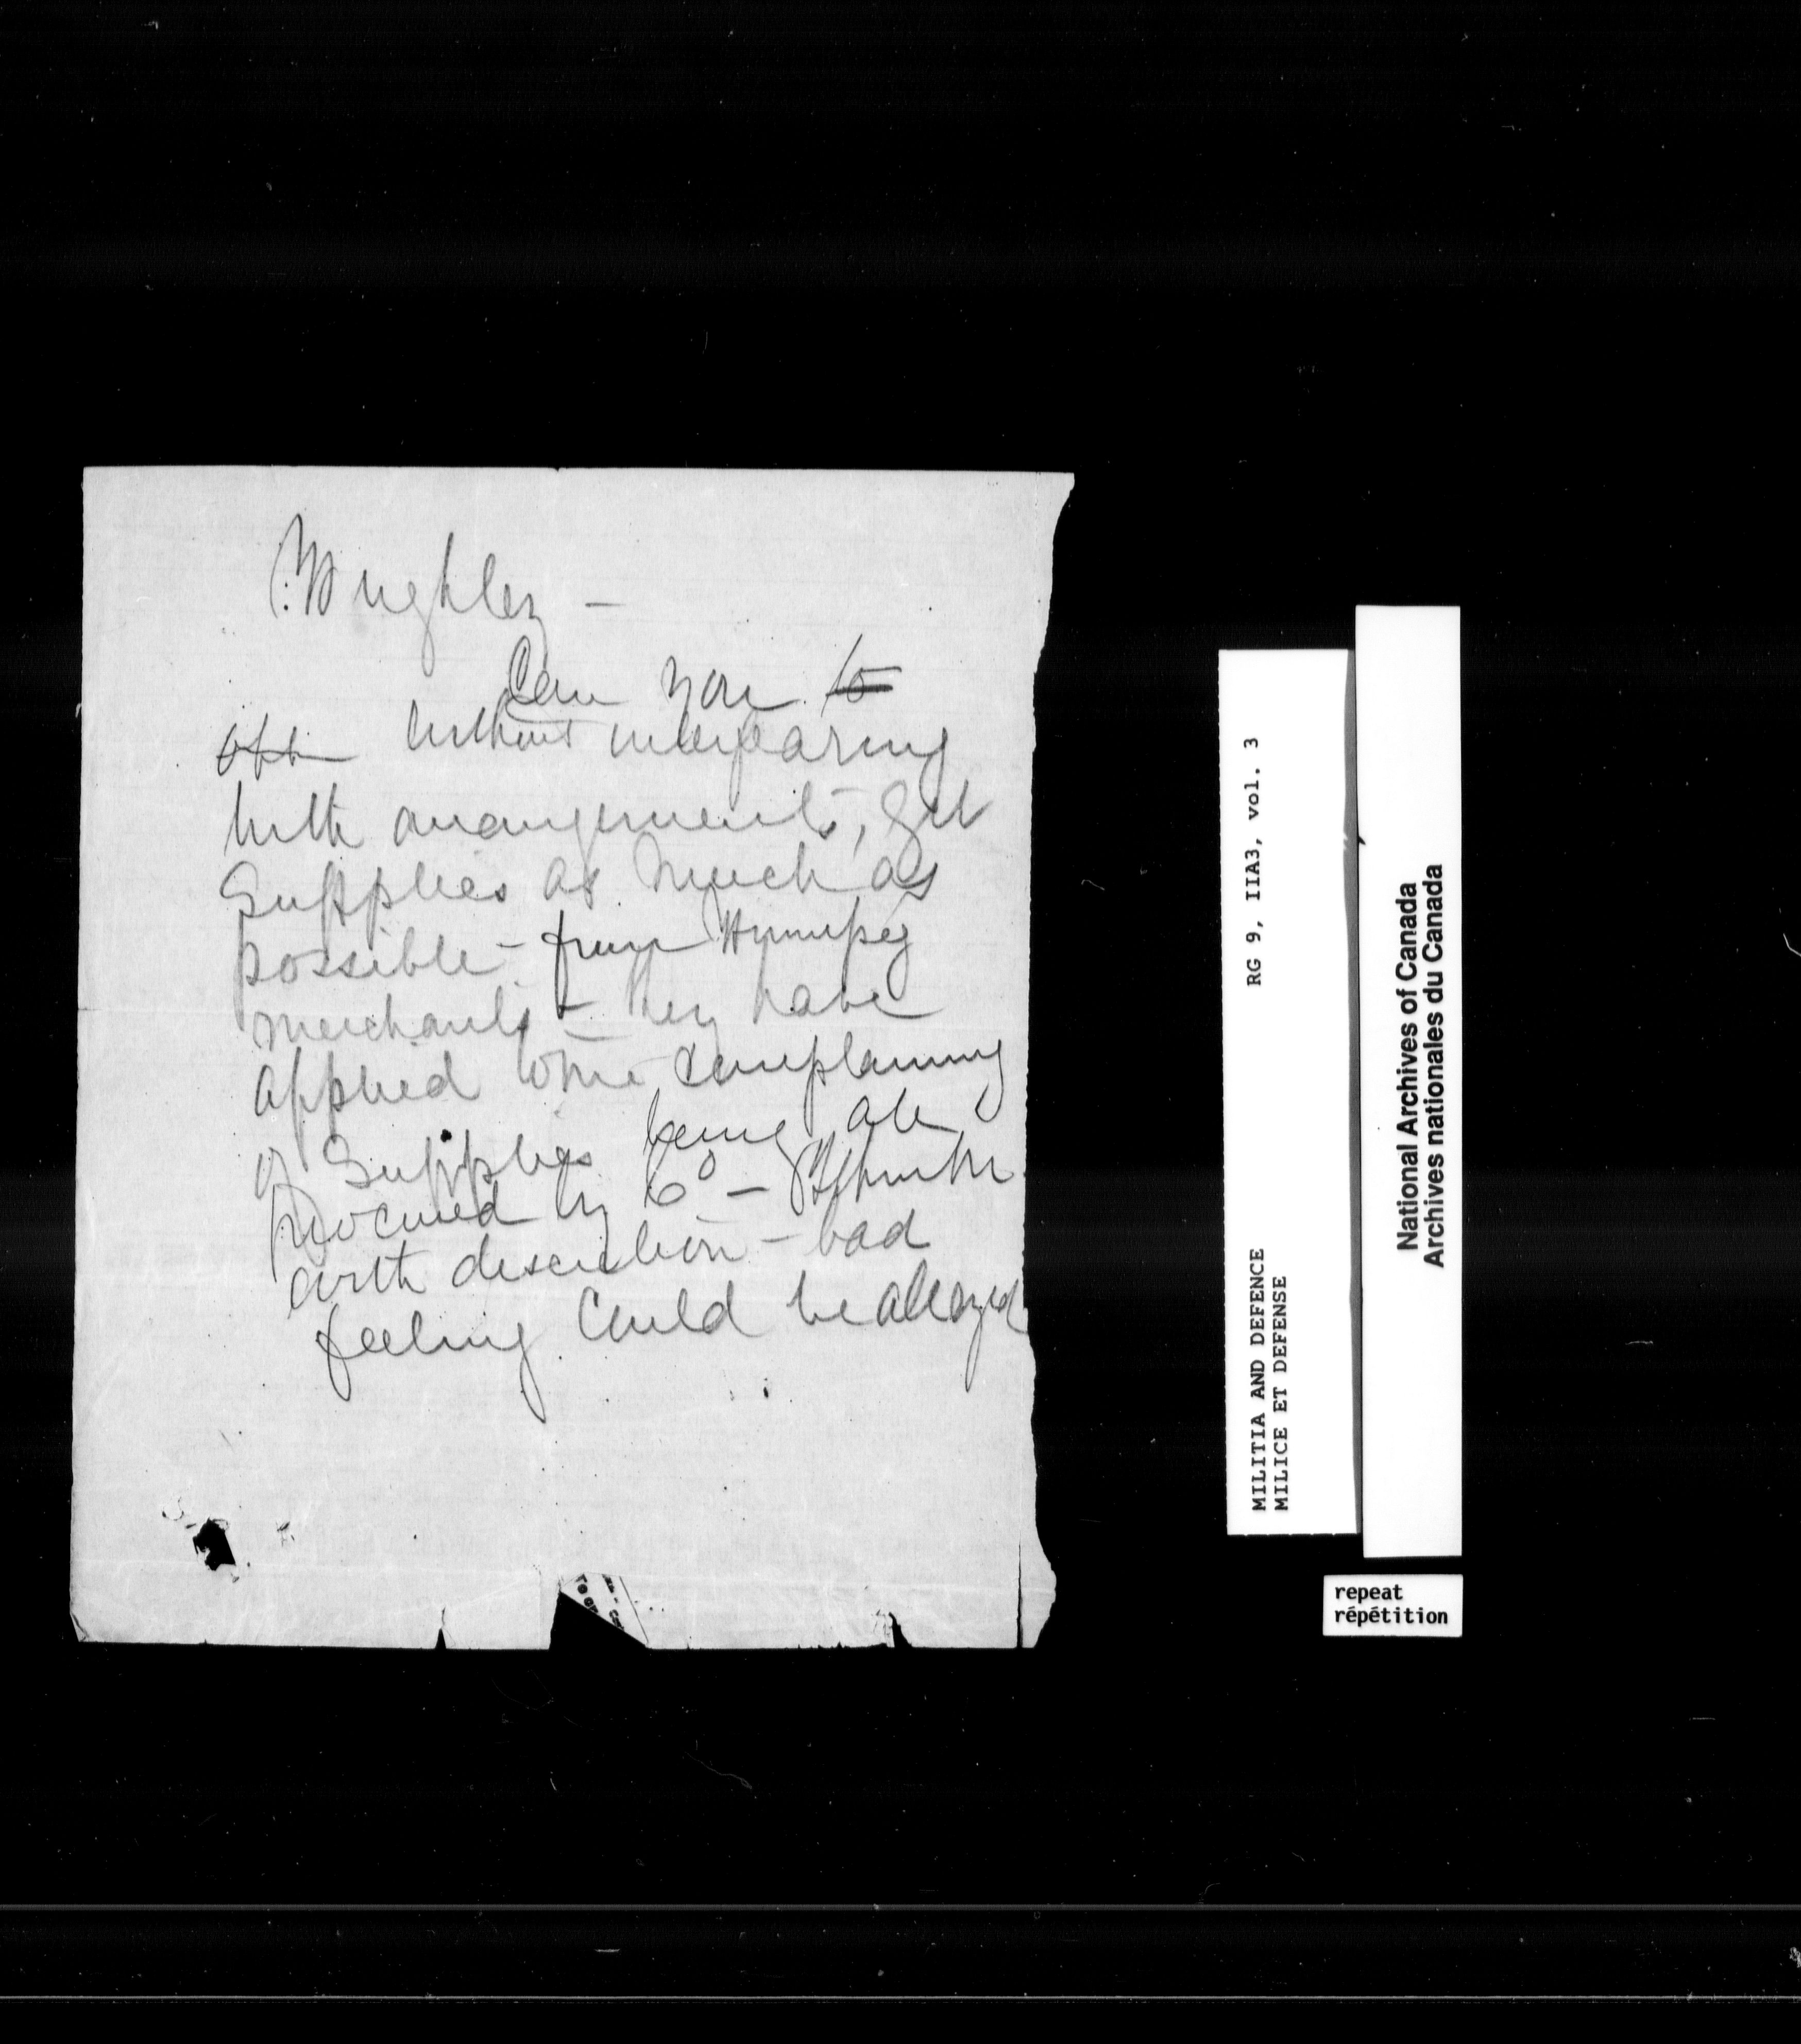 Wrighley –
Can you to
off without interfearing
with arrangements, get
Supplies as much as
possible – from Winnipeg
merchants – they have
applied to me complaining
of Supplies being all
procured by Co – I think
with discretion – bad
feeling could be allayed
RG 9, IIA3, vol. 3
MILITIA AND DEFENCE
MILICE ET DEFENSE
National Archives of Canada
Archives nationales du Canada
repeat
répétition